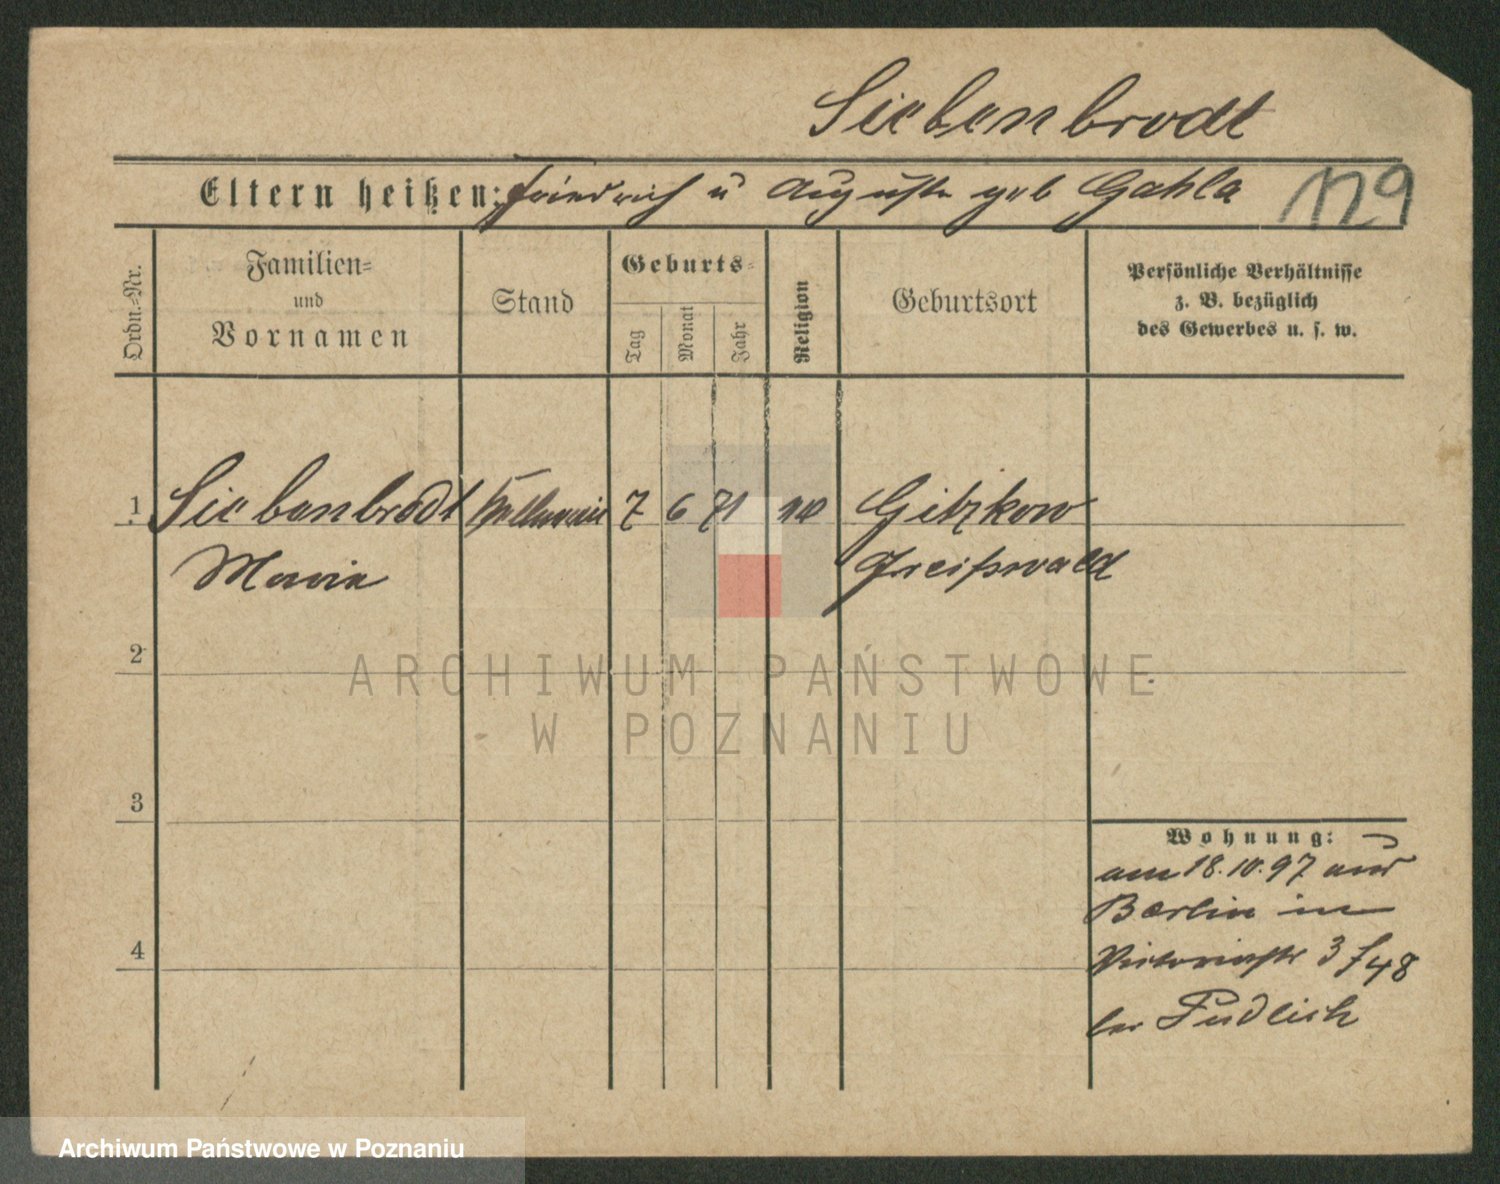 Siebenbrodt
Eltern heißen: Friedrich u Auguste geb Gahla 129
Ordn.-Nr.
Familien-
und
Vornamen
Stand
Geburts-
Tag
Monat
Jahr
Religion
Geburtsort
Persönliche Verhältnisse
z. B. bezüglich
des Gewerbes u. s. w.
1 Siebenbrodt Kellnerin 7 6 71 Gitzkow
Marie Greifswald
ARCHIWUM PAŃSTWOWE
W POZNANIU
2
3
4
Wohnung:
am 18.10.97 aus
Berlin in
Victoriastr 3 / 48
bei Pudlich
Archiwum Państwowe w Poznaniu